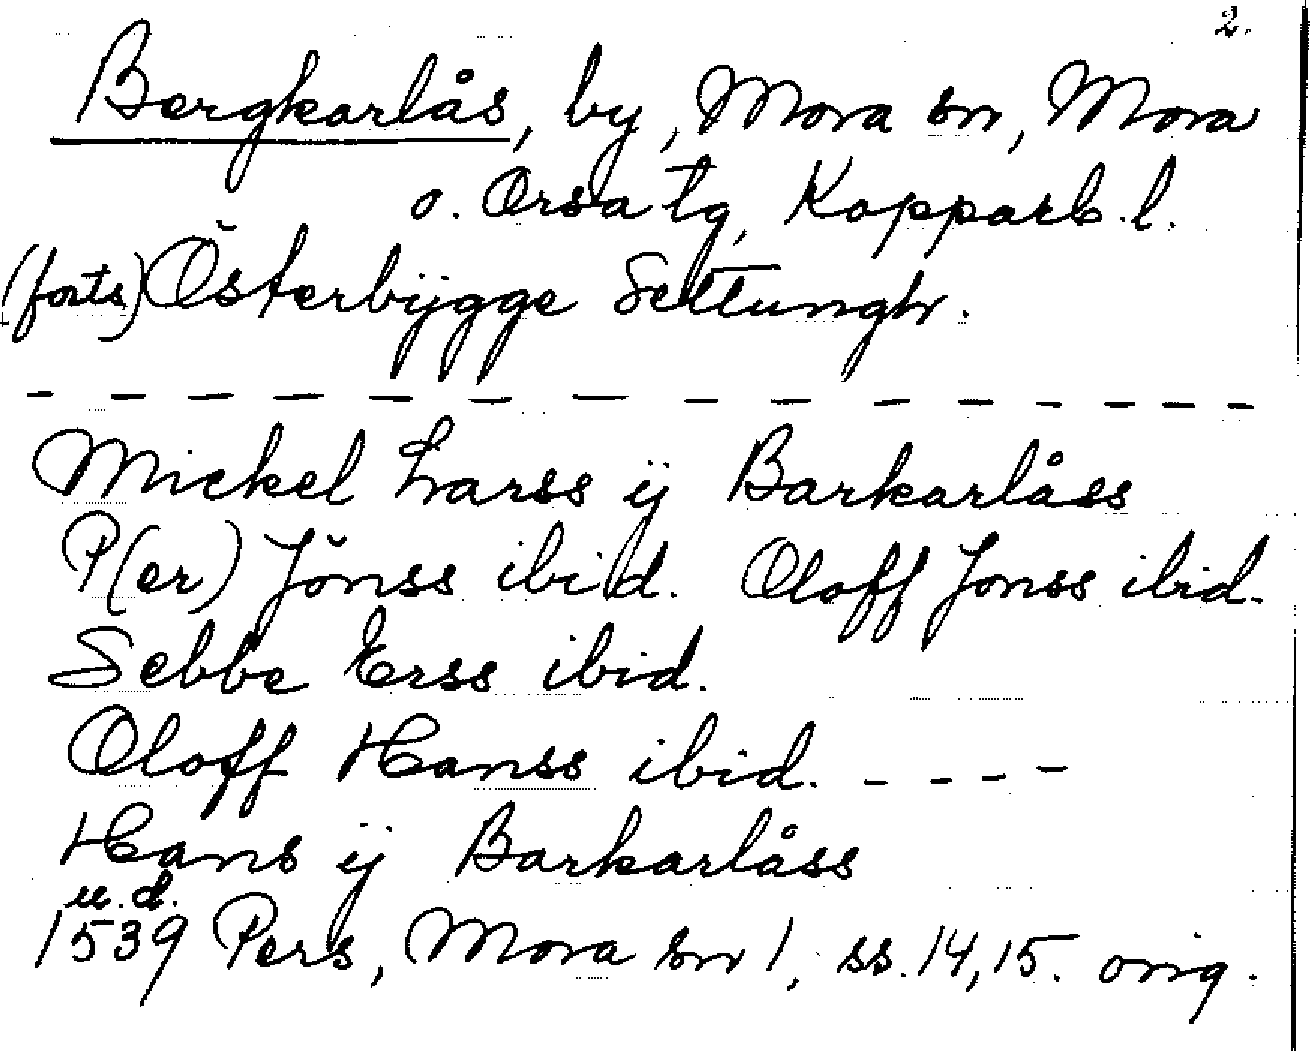 2.
Bergkarlås, by, Mora sn, Mora
o. Orsa tg, Kopparb. l.
(forts) Österbÿgge Settungh.
– – – – – – – – – – – – – – –
Mickel Larss ij Barkarlåss
P(er) Jönss ibid. Oloff Jonss ibid.
Sebbe Erss ibid.
Oloff Hanss ibid. – – – –
Hans ij Barkarlåss
u. d.
1539 Pers, Mora sn 1, ss. 14, 15. orig.